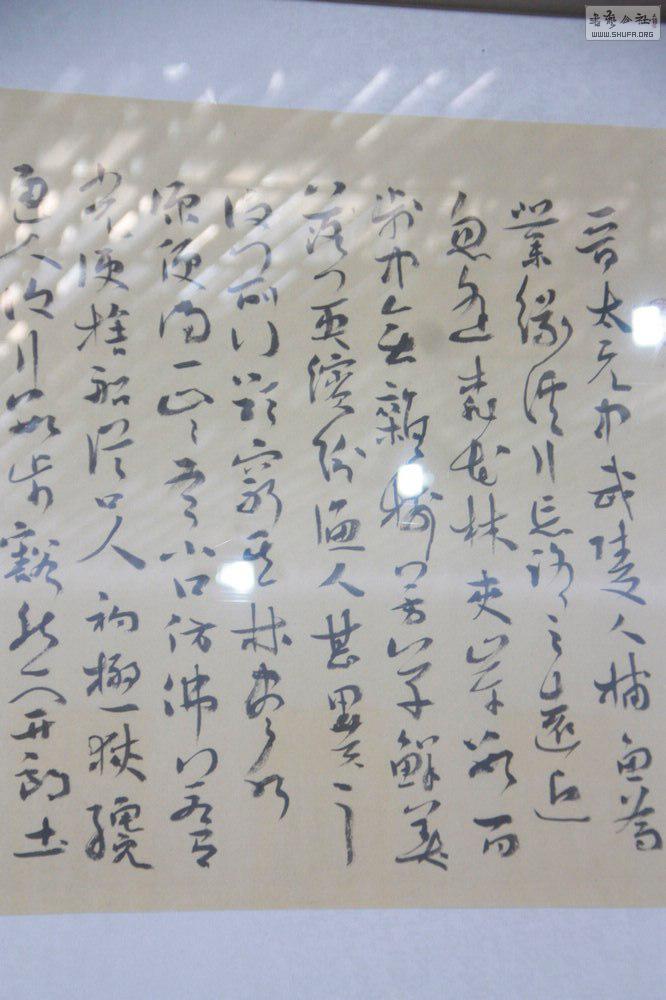 晉太元中武陵人捕魚為
業緣溪行忘路之遠近
忽逢桃花林夾岸數百
步中無雜樹芳草鮮美
落英繽紛漁人甚異之
復前行欲窮其林盡水
源便得一山〻有小口仿佛若有
光便捨船從口入初極狹纔
通人復行數步豁然開朗土
書藝公社
WWW.SHUFA.ORG